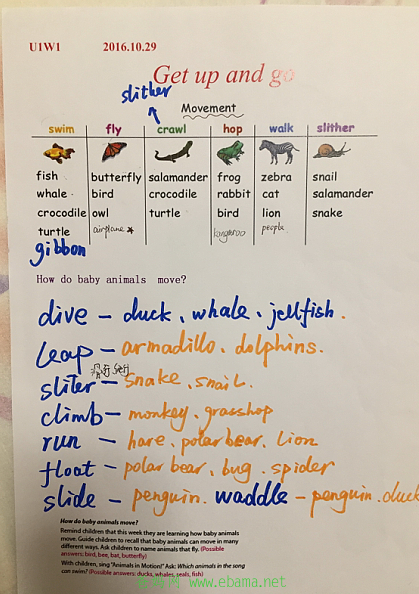 U1W1 2016.10.29
Get up and go
slither
Movement
swim fly crawl hop walk slither
fish butterfly salamander frog zebra snail
whale bird crocodile rabbit cat salamander
crocodile owl turtle bird lion snake
turtle airplane kangaroo people
gibbon
How do baby animals move?
dive - duck、whale、jellfish.
leap - armadillo、dolphins.
sliter - snake、snail.
climb - monkey、grasshop
run - hare、polar bear、Lion
float - polar bear、bug、spider
slide - penguin. waddle - penguin.duck
How do baby animals move?
Remind children that this week they are learning how baby animals
move. Guide children to recall that baby animals can move in many
different ways. Ask children to name animals that fly. (Possible
answers: bird, bee, bat, butterfly)
With children, sing "Animals in Motion!" Ask: Which animals in the song
can swim? (Possible answers: ducks, whales, seals, fish)
www.ebama.net